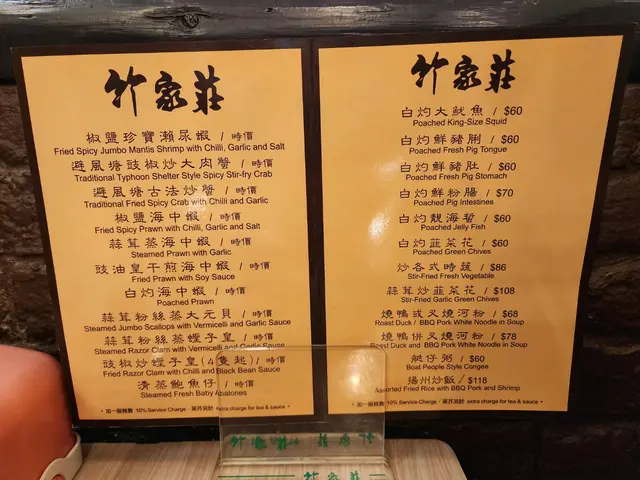 竹家莊
椒鹽珍寶瀨尿蝦 / 時價
Fried Spicy Jumbo Mantis Shrimp with Chilli, Garlic and Salt
避風塘豉椒炒大肉蟹 / 時價
Traditional Typhoon Shelter Style Spicy Stir-fry Crab
避風塘古法炒蟹 / 時價
Traditional Fried Spicy Crab with Chilli and Garlic
椒鹽海中蝦 / 時價
Fried Spicy Prawn with Chilli, Garlic and Salt
蒜茸蒸海中蝦 / 時價
Steamed Prawn with Garlic
豉油皇干煎海中蝦 / 時價
Fried Prawn with Soy Sauce
白灼海中蝦 / 時價
Poached Prawn
蒜茸粉絲蒸大元貝 / 時價
Steamed Jumbo Scallops with Vermicelli and Garlic Sauce
蒜茸粉絲蒸蟶子皇 / 時價
Steamed Razor Clam with Vermicelli and Garlic Sauce
豉椒炒蟶子皇(4隻起) / 時價
Fried Razor Clam with Chilli and Black Bean Sauce
清蒸鮑魚仔 / 時價
Steamed Fresh Baby Abalones
· 加一服務費 10% Service Charge · 茶芥另計 extra charge for tea & sauce ·
竹家莊
白灼大魷魚 / $60
Poached King-Size Squid
白灼鮮豬脷 / $60
Poached Fresh Pig Tongue
白灼鮮豬肚 / $60
Poached Fresh Pig Stomach
白灼鮮粉腸 / $70
Poached Pig Intestines
白灼靚海蜇 / $60
Poached Jelly Fish
白灼韮菜花 / $60
Poached Green Chives
炒各式時蔬 / $86
Stir-Fried Fresh Vegetable
蒜茸炒韮菜花 / $108
Stir-Fried Garlic Green Chives
燒鴨或叉燒河粉 / $68
Roast Duck / BBQ Pork White Noodle in Soup
燒鴨併叉燒河粉 / $78
Roast Duck and BBQ Pork White Noodle in Soup
艇仔粥 / $60
Boat People Style Congee
揚州炒飯 / $118
Assorted Fried Rice with BBQ Pork and Shrimp
· 加一服務費 10% Service Charge · 茶芥另計 extra charge for tea & sauce ·
竹家莊